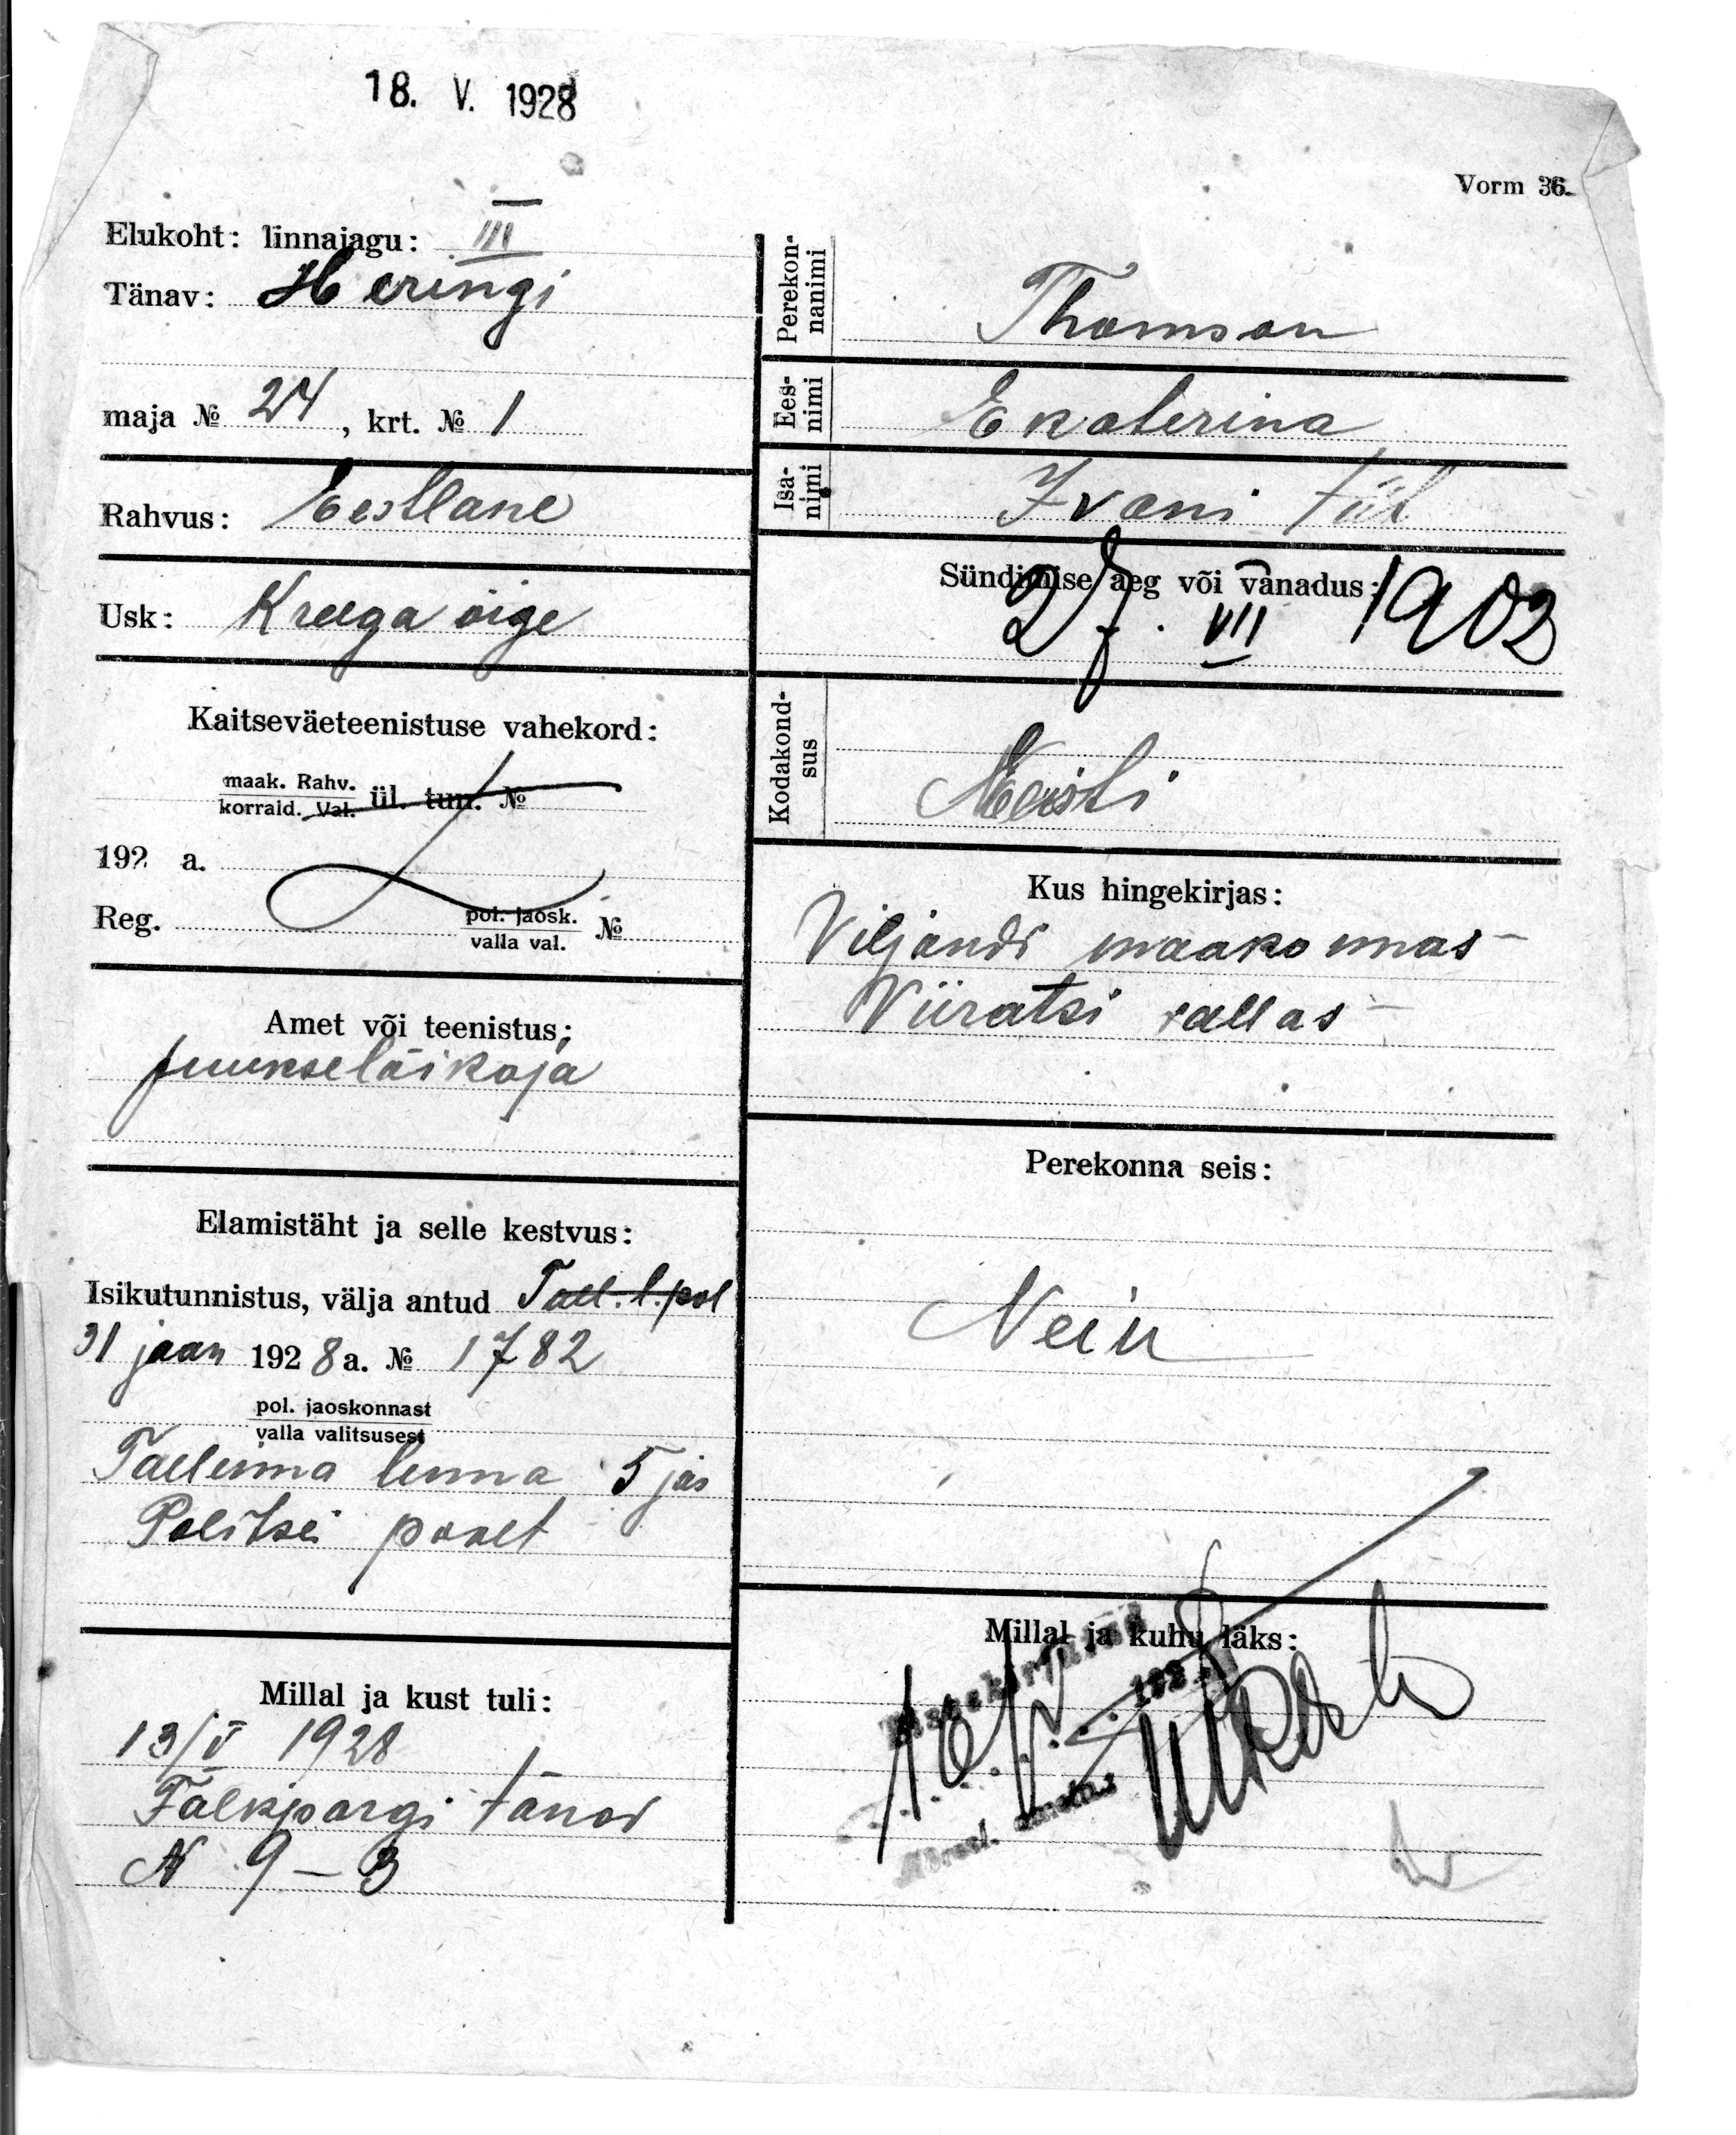 18. V. 1928
Vorm 36.
Elukoht: linnajagu: III
Tänav: Heringi
maja № 24, krt. № 1
Rahvus: Eestlane
Usk: Kreega õige
Kaitseväeteenistuse vahekord:
maak. Rahv.
korraid. Val. ül. tun. №
192 a.
Reg. pol. jaosk.
valla val. №
Amet või teenistus:
juukselõikaja
Elamistäht ja selle kestvus:
Isikutunnistus, välja antud Tall. l. pol
31 jaan 1928 a. № 1782
pol. jaoskonnast
valla valitsusest
Taelinna linna 5 jas
Politsei poolt
Millal ja kust tuli:
13/V 1928
Falkpargi tänav
N 9 – 3
Perekon-
nanimi
Thomson
Ees-
nimi
Ekaterina
Isa-
nimi
Ivani tüt
Sündimise aeg või vanadus:
27. VII 1902
Kodakond-
sus
Eesti
Kus hingekirjas:
Viljandi maakonnas
Viiratsi vallas
Perekonna seis:
Neiu
Millal ja kuhu läks:
192